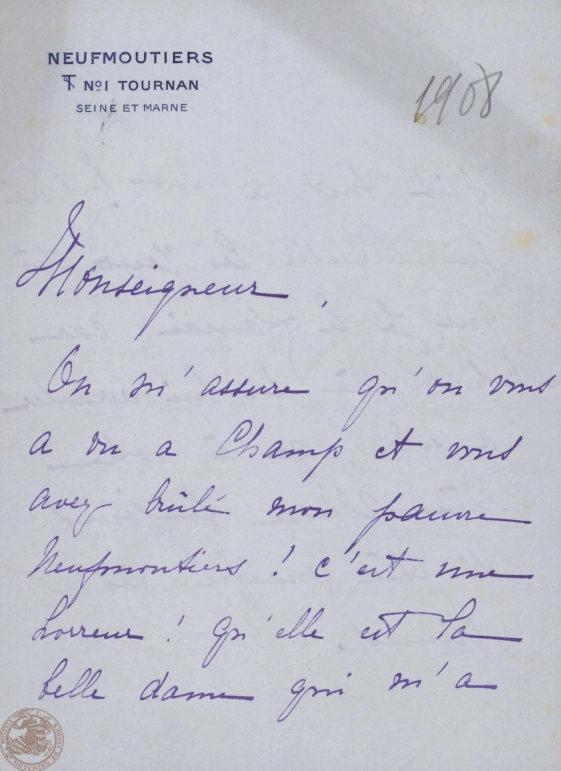 NEUFMOUTIERS
No 1 TOURNAN
SEINE ET MARNE
1908
Monseigneur,
On m'assure qu'on vous
a vu a Champ et vous
avez brûlé mon pauvre
Neufmoutiers ! c'est une
horreur ! qu'elle est la
belle dame qui m'a